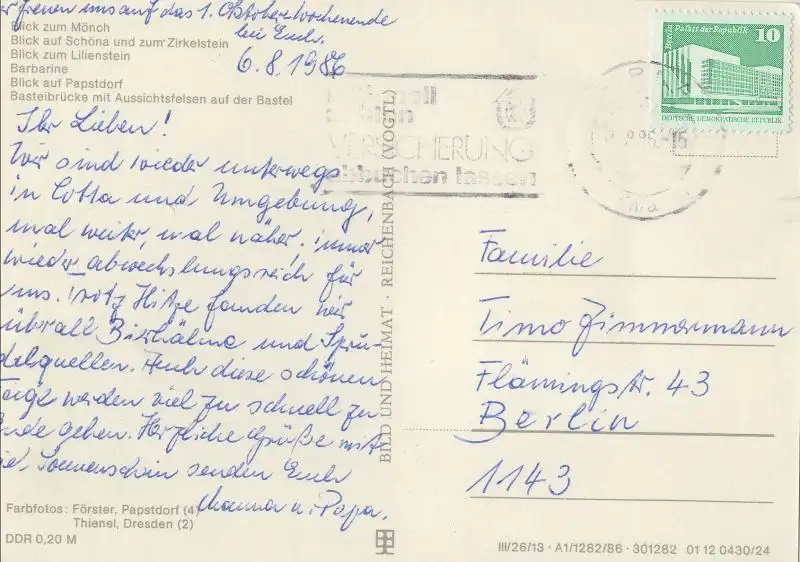 freuen uns auf das 1. Oktober-Wochenende
bei Euch.
Blick zum Mönch
Blick auf Schöna und zum Zirkelstein
Blick zum Lilienstein
Barbarine
Blick auf Papstdorf
Basteibrücke mit Aussichtsfelsen auf der Bastei
6.8.1986
Ihr Lieben!
Wir sind wieder unterwegs
in Cotta und Umgebung,
mal weiter, mal näher, immer
wieder abwechslungsreich für
uns. Trotz Hitze fanden wir
überall Bierhähne und Spru-
delquellen. Auch diese schönen
Tage werden viel zu schnell zu
Ende gehen. Herzliche Grüße mit
Sonnenschein senden Euch
u. Papa.
Farbfotos: Förster, Papstdorf (4)
Thienel, Dresden (2)
DDR 0,20 M
BILD UND HEIMAT · REICHENBACH (VOGTL)
VERSICHERUNG
abbuchen lassen
Berlin Palast der Republik
10
DEUTSCHE DEMOKRATISCHE REPUBLIK
Familie
Timo Zimmermann
Flämingstr. 43
Berlin
1143
III/26/13 · A1/1282/86 · 301282 01 12 0430/24